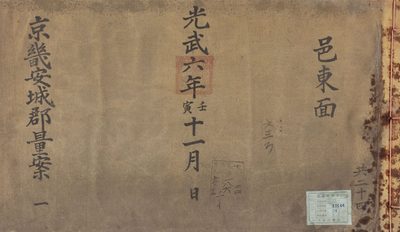 邑東面
共二十四
光武六年壬寅十一月 日
京畿安城郡量案 一